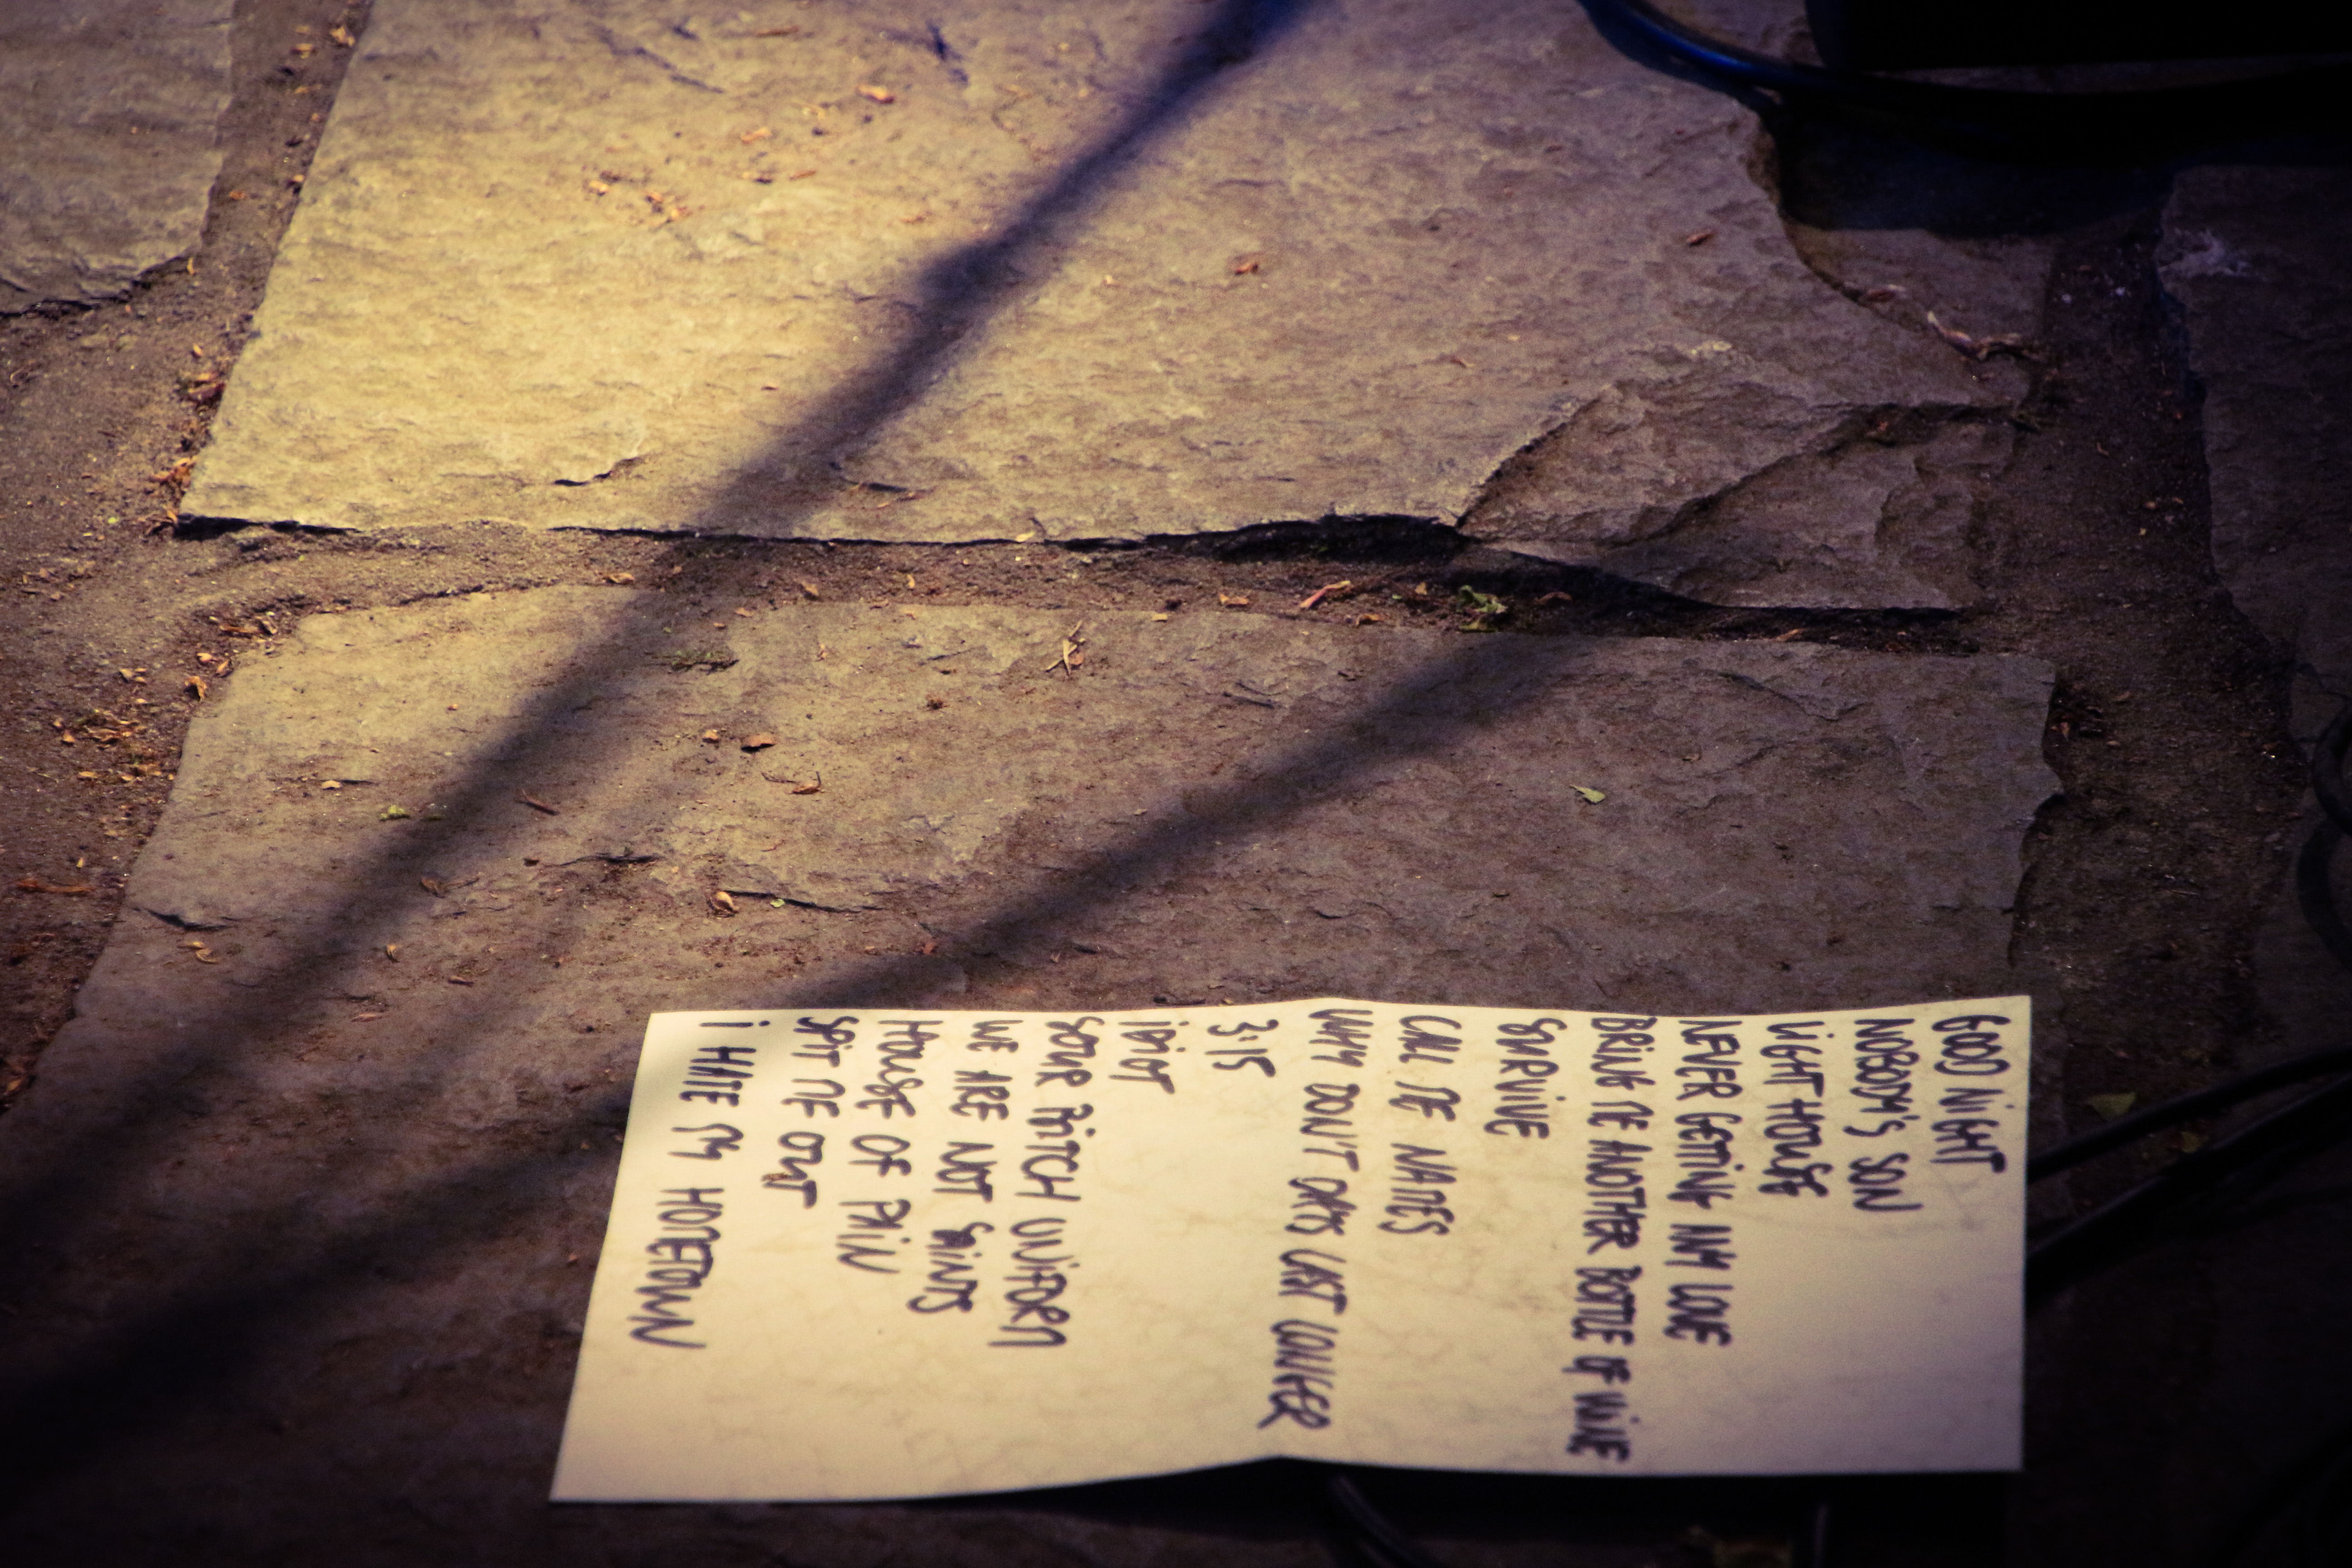 GOOD NiGHT
NOBODY'S SON
LiGHT HOUSE
NEVER GETTING MY LOVE
BRING ME ANOTHER BOTTLE OF WiNE
SURViVE
CALL ME NAMES
WHY DON'T DAYS LAST LONGER
3:15
iDiOT
SOUR PiTCH UNiFORM
WE ARE NOT SAiNTS
HOUSE OF PAiN
SPiT ME OUT
i HATE MY HOMETOWN